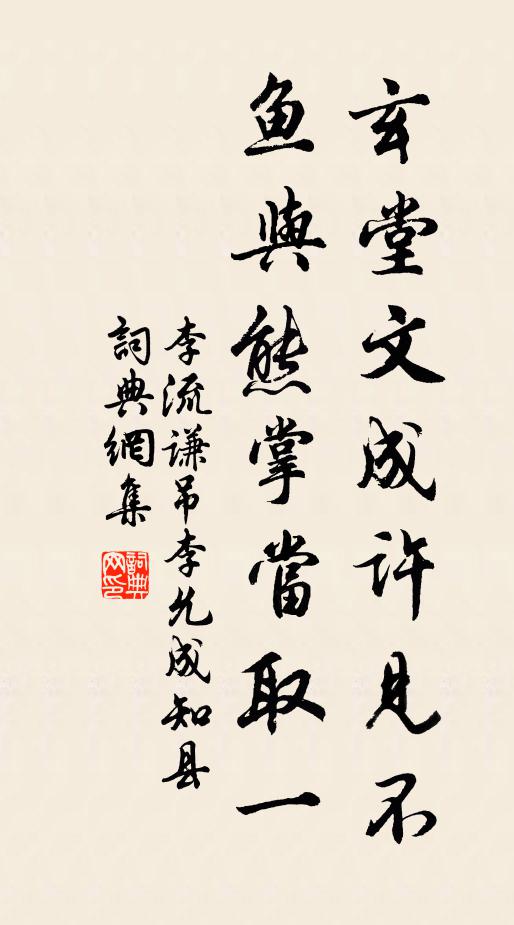 玄堂文成许見不
鱼與熊掌當取一
李流謙吊李允成知县
詞典網集
詞典网印